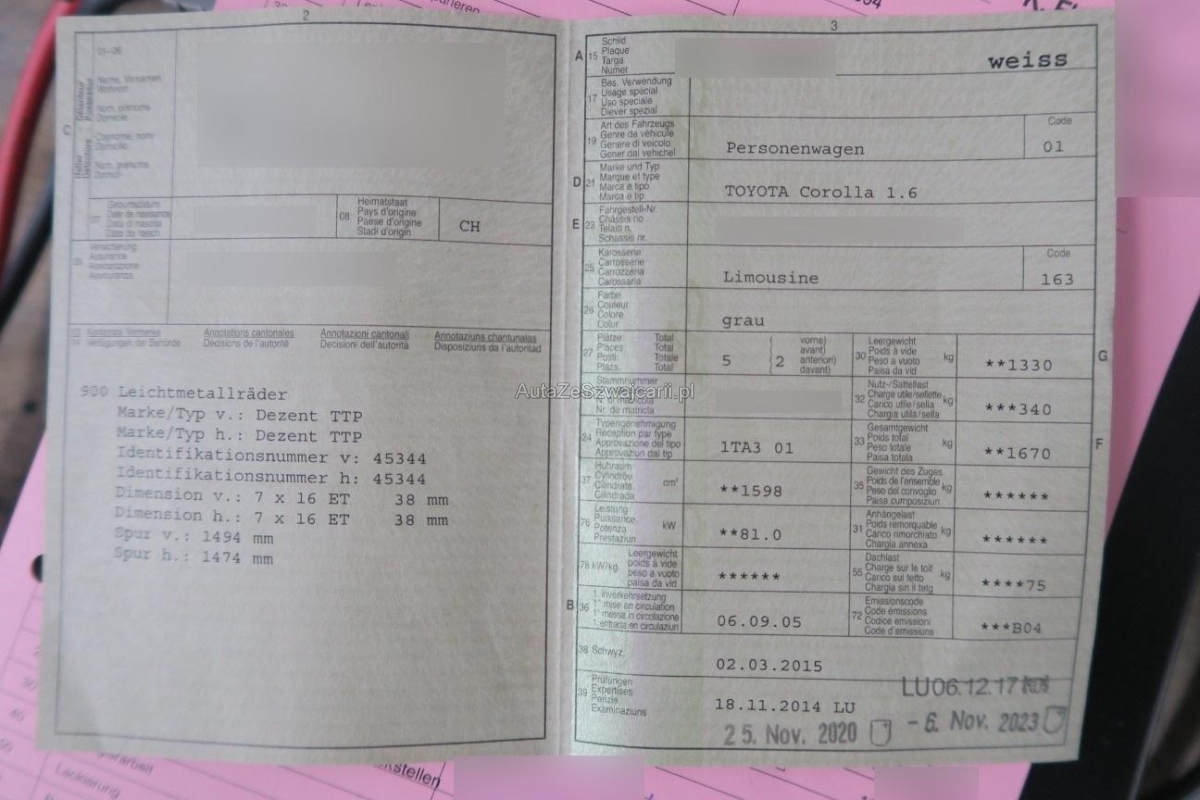 2
01-06
Name, Vornamen
Wohnort
Nom, prénoms
Domicile
Cognome, nomi
Domicilio
Nom, prenums
Domicil
C
07
Geburtsdatum
Date de naissance
Data di nascita
Data da nasch.
08
Heimatstaat
Pays d'origine
Paese d'origine
Stadi d'origin
CH
09
Versicherung
Assurance
Assicurazione
Kantonale Vermerke
Verfügungen der Behörde
Annotations cantonales
Décisions de l'autorité
Annotazioni cantonali
Decisioni dell'autorità
Annotaziuns chantunalas
Disposiziuns da l'autoritad
900 Leichtmetallräder
Marke/Typ v.: Dezent TTP
Marke/Typ h.: Dezent TTP
Identifikationsnummer v: 45344
Identifikationsnummer h: 45344
Dimension v.: 7 x 16 ET 38 mm
Dimension h.: 7 x 16 ET 38 mm
Spur v.: 1494 mm
Spur h.: 1474 mm
AutaZeSzwajcarii.pl
3
A 15
Schild
Plaque
Targa
Numer
weiss
17
Bes. Verwendung
Usage spécial
Uso speciale
Diever spezial
19
Art des Fahrzeugs
Genre de véhicule
Genere di veicolo
Gener dal vehichel
Personenwagen
Code
01
D 21
Marke und Typ
Marque et type
Marca e tipo
Marca e tip
TOYOTA Corolla 1.6
E 23
Fahrgestell-Nr.
Châssis no
Telaio n.
Schassis nr.
25
Karosserie
Carrosserie
Carrozzeria
Carossaria
Limousine
Code
163
26
Farbe
Couleur
Colore
Colur
grau
27
Plätze: Total
Places: Total
Posti: Totale
Plazs: Total
5
2
vorne)
avant)
anteriori)
davant)
30
Leergewicht
Poids à vide
Peso a vuoto
Paisa da vid
kg
**1330
G
Stammnummer
Nr. da matricla
32
Nutz-/Sattellast
Charge utile/sellette
Carico utile/sella
Chargia utila/sella
kg
***340
24
Typengenehmigung
Réception par type
Approvazione del tipo
Approvaziun dal tip
1TA3 01
33
Gesamtgewicht
Poids total
Peso totale
Paisa totala
kg
**1670
F
37
Hubraum
Cylindrée
Cilindrata
Cilindrada
cm³
**1598
35
Gewicht des Zuges
Poids de l'ensemble
Peso del convoglio
Paisa cumposiziun
kg
******
76
Leistung
Puissance
Potenza
Prestaziun
kW
**81.0
31
Anhängelast
Poids remorquable
Carico rimorchiato
Chargia annexa
kg
******
78 kW/kg
Leergewicht
poids à vide
peso a vuoto
paisa da vid
******
55
Dachlast
Charge sur le toit
Carico sul tetto
Chargia sin il tetg
kg
****75
B 36
1. Inverkehrsetzung
1re mise en circulation
1a messa in circolazione
1. entrada en circulaziun
06.09.05
72
Emissionscode
Code émissions
Codice emissioni
Code d'emissiuns
***B04
38 Schwyz.
02.03.2015
39
Prüfungen
Expertises
Perizie
Examinaziuns
18.11.2014 LU
LU06.12.17
25. Nov. 2020
- 6. Nov. 2023